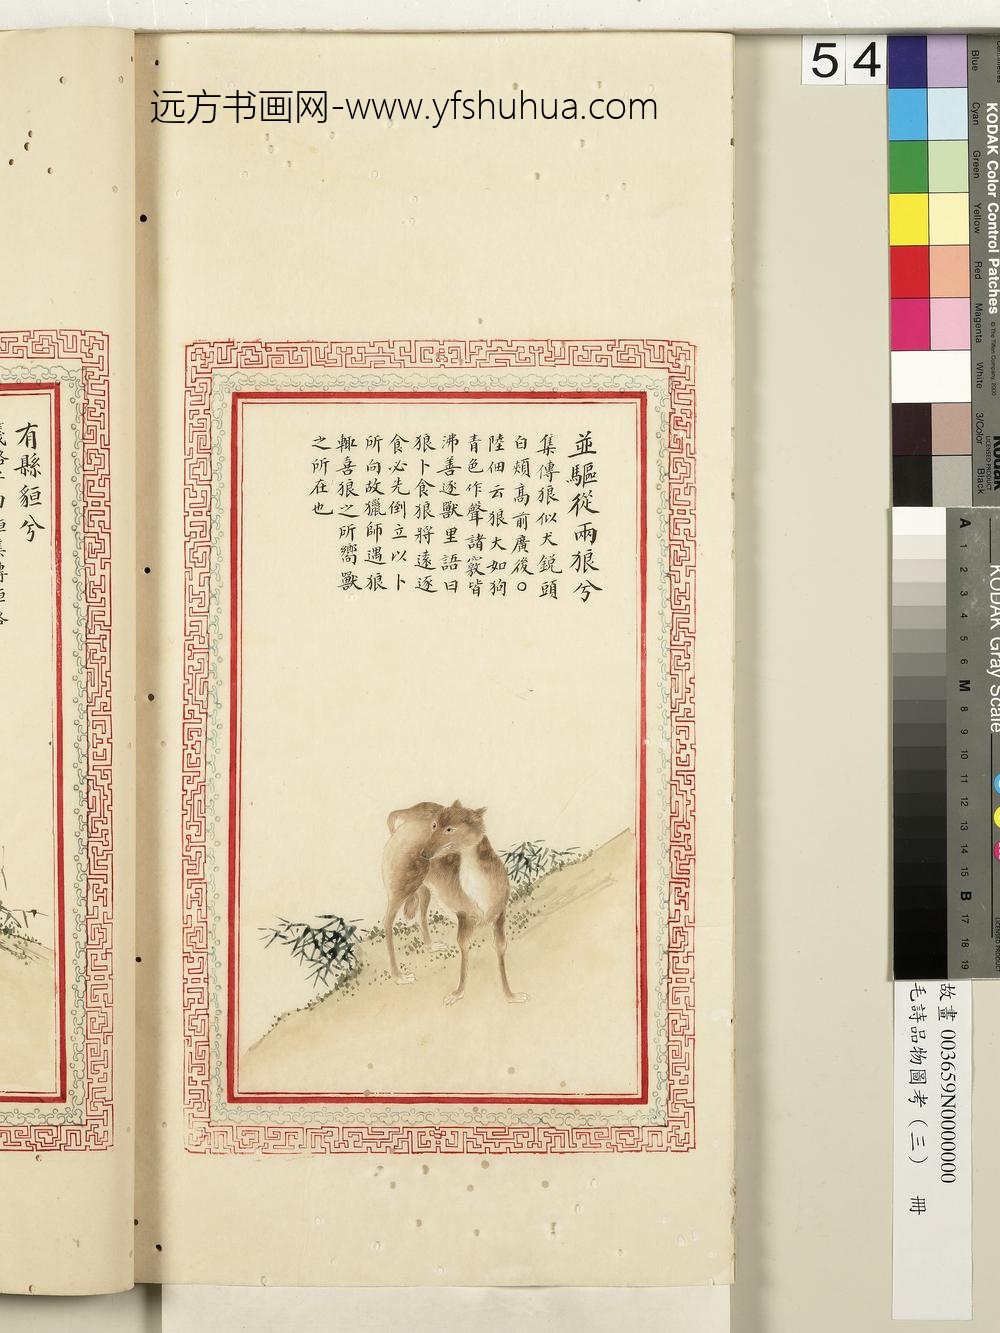 远方书画网-www.yfshuhua.com
54
並驅從兩狼兮
集傳狼似犬銳頭
白頰高前廣後○
陸佃云狼大如狗
青色作聲諸竅皆
沸善逐獸里語曰
狼卜食狼將遠逐
食必先倒立以卜
所向故獵師遇狼
輒喜狼之所嚮獸
之所在也
有縣貆兮
KODAK Color Control Patches
Blue
Cyan
Green
Yellow
Red
Magenta
White
3/Color
Black
LICENSED PRODUCT
Kodak
KODAK Gray Scale
A 1 2 3 4 5 6 M 8 9 10 11 12 13 14 15 B 17 18 19
故畫 003659N0000000
毛詩品物圖考（三） 冊